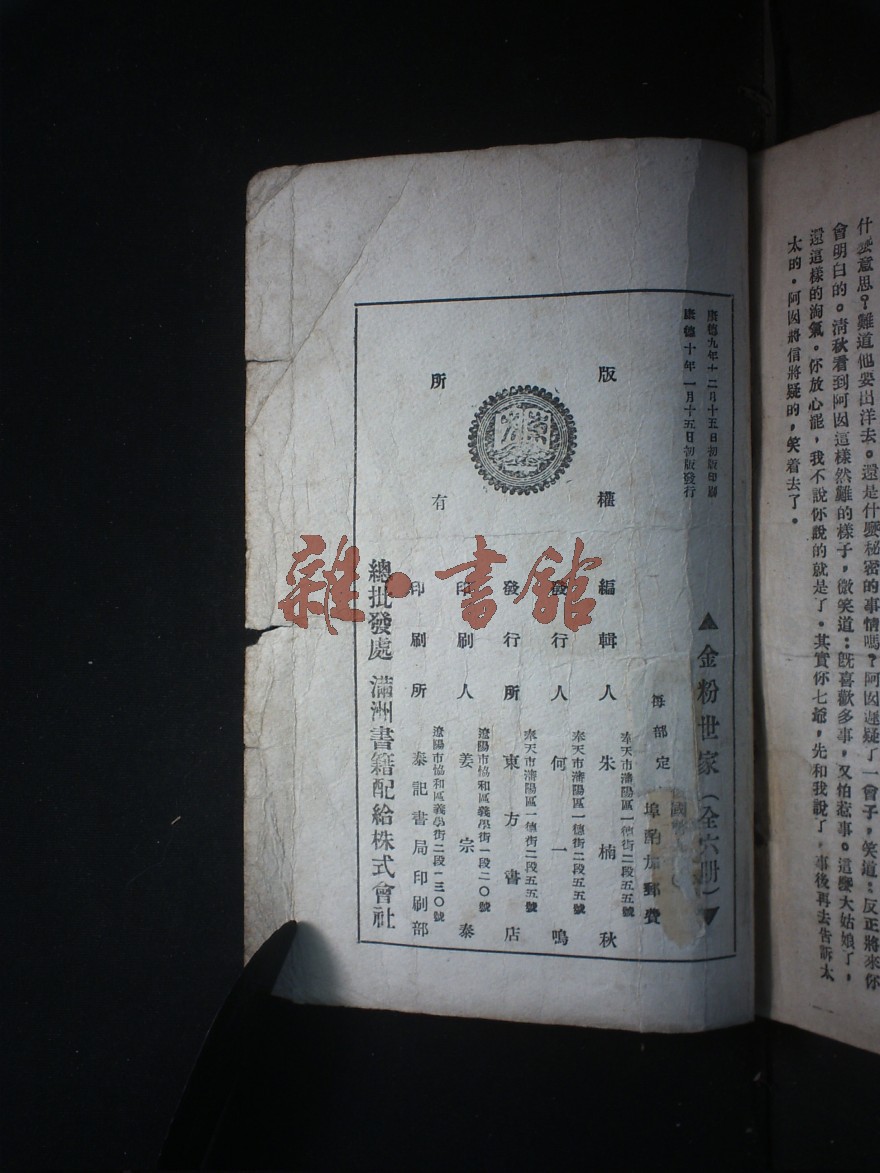 什麽意思?難道他要出洋去。還是什麽秘密的事情嗎?阿囡遲疑了一會子,笑道:反正將來你
會明白的。清秋看到阿囡這樣然難的樣子,微笑道:旣喜歡多事,又怕惹事。這麽大姑娘了,
還這樣的淘氣。你放心罷,我不說你說的就是了。其實你七爺,先和我說了,事後再去告訴太
太的。阿囡將信將疑的,笑着去了。
康德九年十二月十五日初版印刷
康德十年一月十五日初版發行
▲金粉世家(全六册)▼
每部定
國幣
埠酌加郵費
版權所有
奉天市瀋陽區一德街二段五五號
編輯人 朱楠秋
奉天市瀋陽區一德街二段五五號
發行人 何一鳴
奉天市瀋陽區一德街二段五五號
發行所 東方書店
遼陽市協和區義學街一段二〇號
印刷人 姜宗泰
遼陽市協和區義學街二段一三〇號
印刷所 泰記書局印刷部
總批發處 滿洲書籍配給株式會社
雜·書館